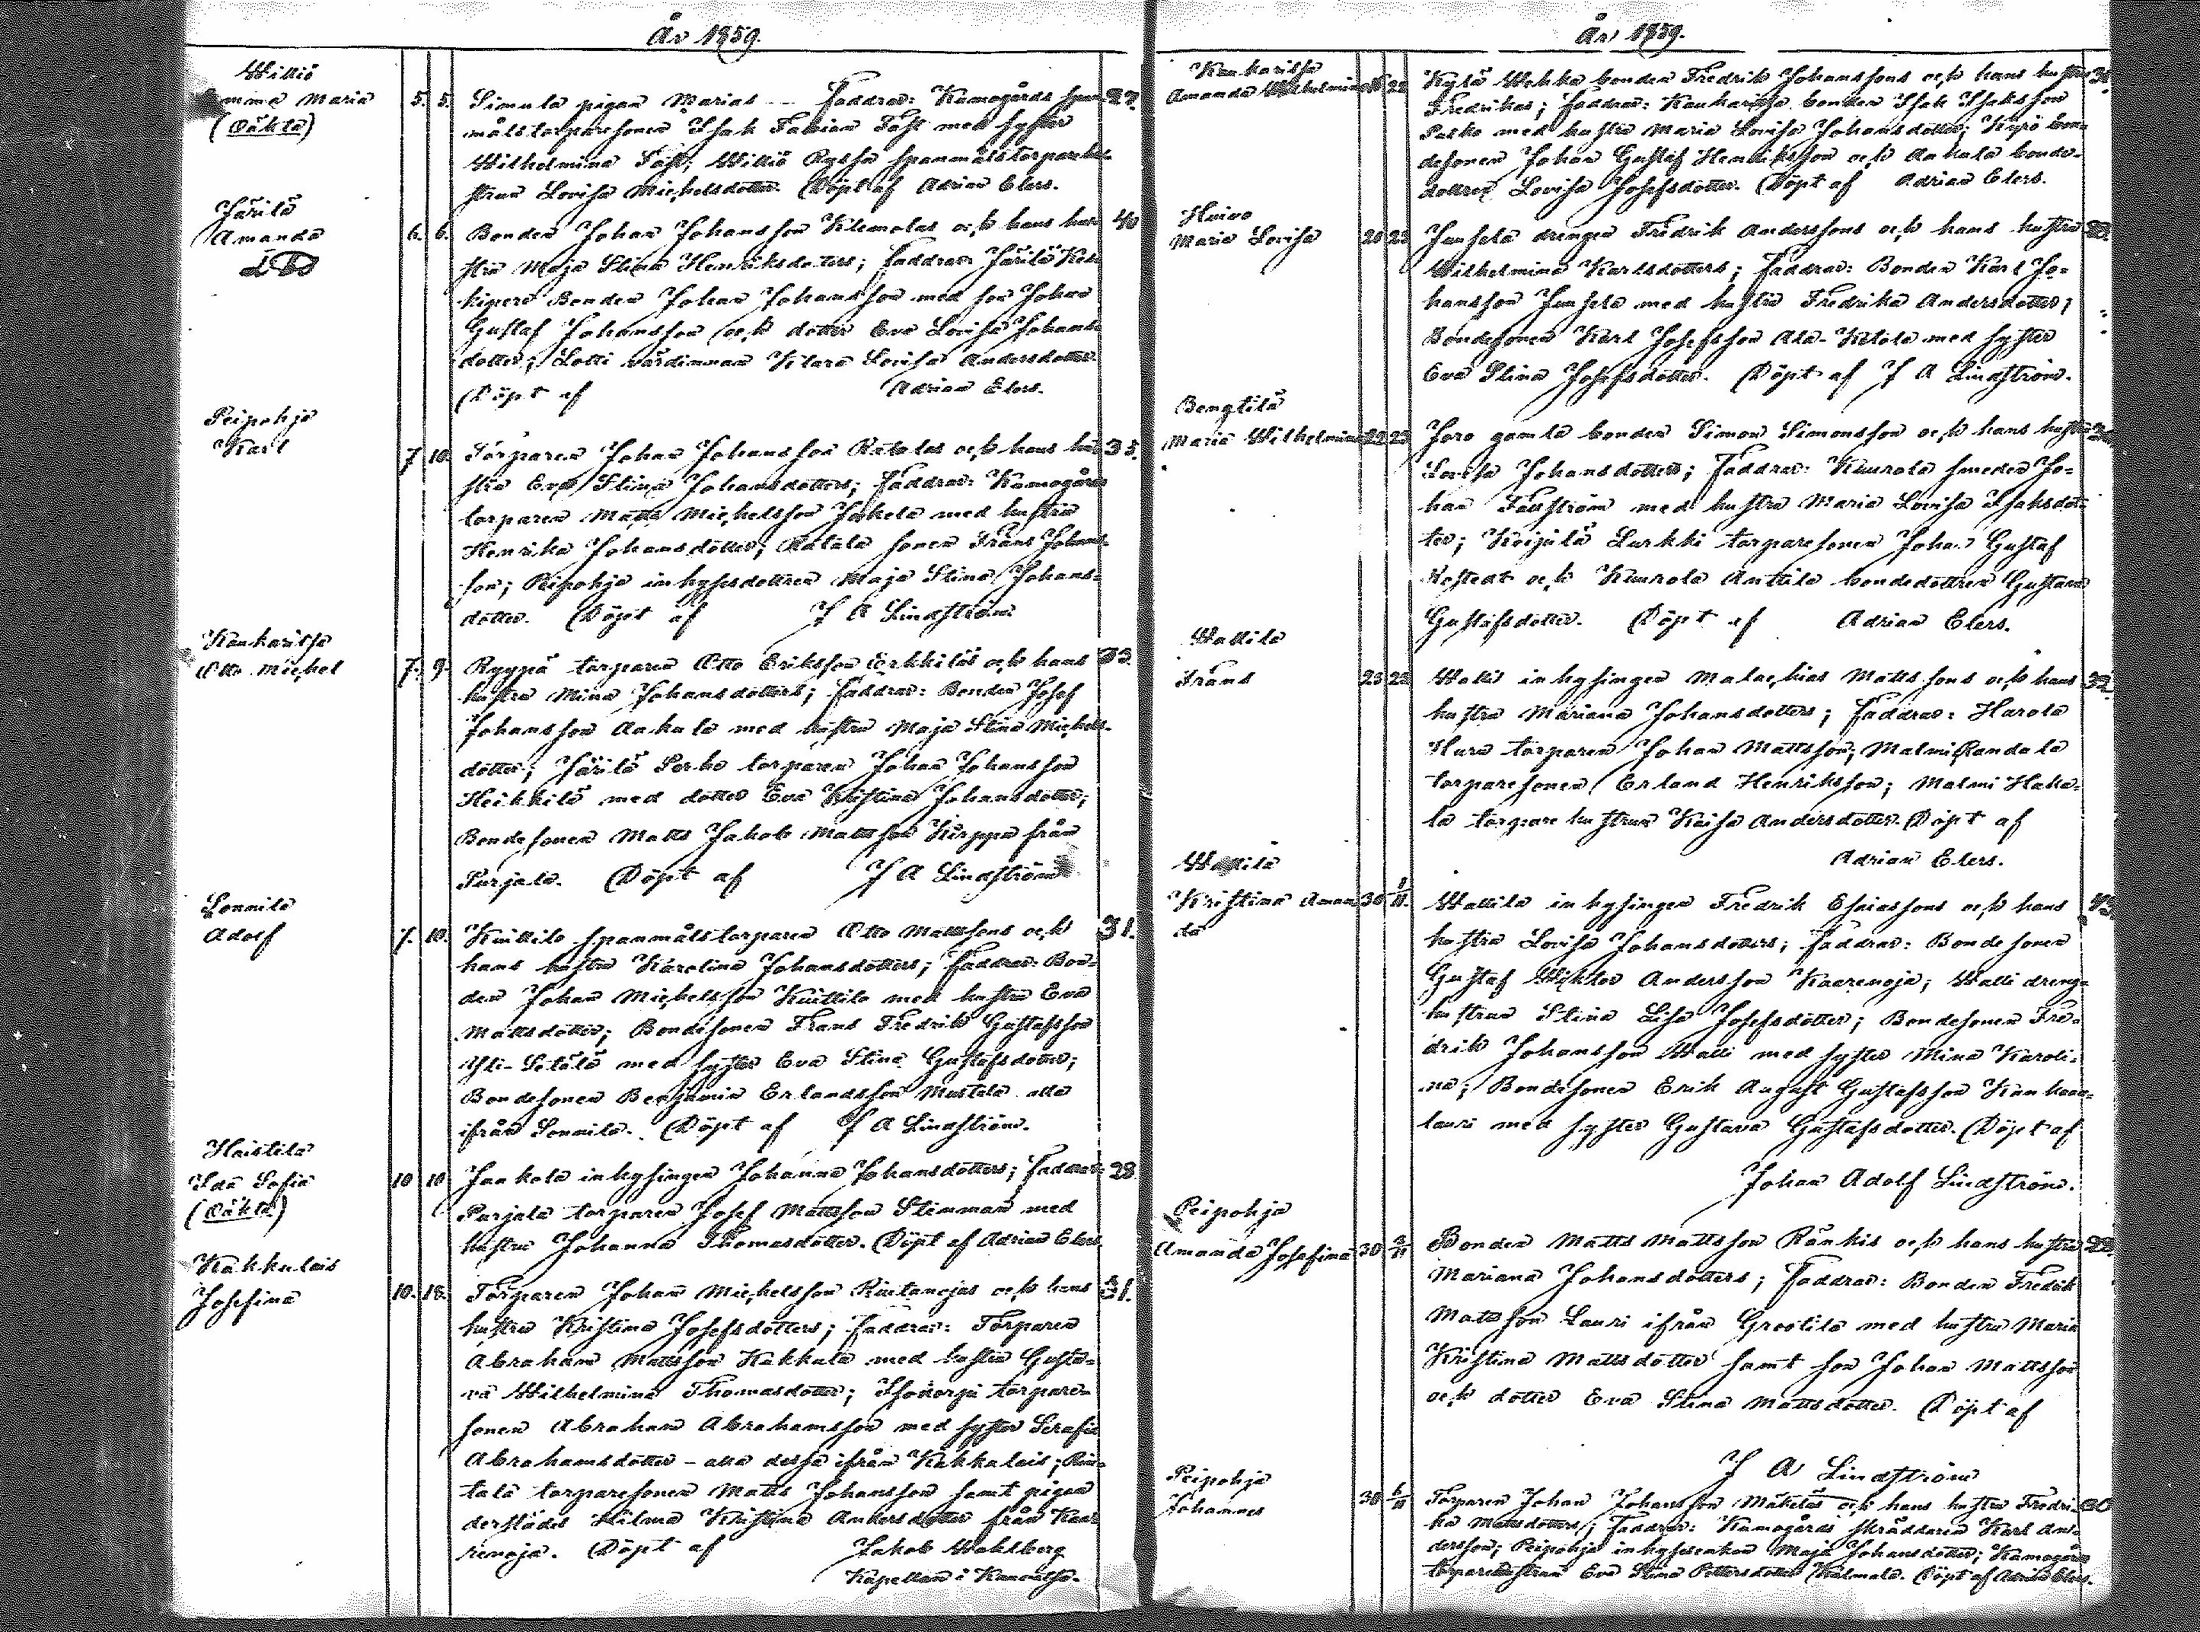 År 1859.
Willio
Emma Maria 5. 5. Simula pigan Marias — Faddrar: Kamogårds span- 27.
(Oäkta) målstorparesonen Isak Fabian Fast med syster
Wilhelmina Fast; Willio Ryssä spanmålstorpare hu-
strun Lovisa Michelsdotter. Döpt af Adrian Elers.
Järilä
Amanda 6. 6. Bonden Johan Johansson Klemolas och hans hu- 40
död stru Maja Stina Henriksdotters; Faddrar: Järilä
Bonden Johan Johansson med son Johan
Gustaf Johansson och dotter Eva Lovisa Johans-
dotter; Lotti värdinnan Klara Lovisa Andersdotter.
Döpt af Adrian Elers.
Peipohja
Karl 7 10. Torparen Johan Johansson Ratalas och hans hu- 35.
stru Eva Stina Johansdotters; Faddrar: Kamogårds
torparen Matts Michelsson Jokela med hustru
Henrika Johansdotter; Ratala sonen Frans Johans-
son; Peipohja inhysesdottren Maja Stina Johans-
dotter. Döpt af J A Lindström
Kaukaritsa
Otto Michel 7. 9. Ryypä torparen Otto Eriksson Erkkiläs och hans 33.
hustru Mina Johansdotters; Faddrar: Bonden Josef
Johansson Ankala med hustru Maja Stina Michels-
dotter; Järilä Perho torparen Johan Johansson
Heikkilä med dotter Eva Kristina Johansdotter;
Bondesonen Matts Jakob Mattsson Kirppu från
Purjala. Döpt af J A Lindström
Sonnila
Adolf 7. 10. Knuttila spanmålstorparen Otto Mattssons och 31.
hans hustru Karolina Johansdotters; Faddrar: Bon-
den Johan Michelsson Knuttila med hustru Eva
Mattsdotter; Bondesonen Frans Fredrik Gustafsson
Yli-Sotala med syster Eva Stina Gustafsdotter;
Bondesonen Benjamin Erlandsson Mustela alla
ifrån Sonnila. Döpt af J A Lindström.
Haistila
Ida Sofia 10 10 Jaakola inhysingen Johanna Johansdotters; Faddrar: 28.
(Oäkta) Purjala torparen Josef Mattsson Stenman med
hustru Johanna Thomasdotter. Döpt af Adrian Elers.
Kakkulais
Josefina 10. 18. Torparen Johan Michelsson Rintanojas och hans 31.
hustru Kristina Josefsdotters; Faddrar: Torparen
Abraham Mattsson Kakkula med hustru Gusta-
va Wilhelmina Thomasdotter; torpare-
sonen Abraham Abrahamsson med syster Serafia
Abrahamsdotter – alla dessa ifrån Kakkulais; Rin-
tala torparesonen Matts Johansson samt pigan
derstädes Hilma Kristina Andersdotter från Kaa-
renoja. Döpt af Jakob Wahlberg
Kapellan i Kauvatsa.
År 1859.
Kaukaritsa
Amanda Wilhelmina 22 Kylä Wekka bonden Fredrik Johanssons och hans hustru
Fredrikas; Faddrar: Kaukaritsa bonden Isak Isaksson
Parko med hustru Maria Lovisa Johansdotter; Kyrö bon-
desonen Johan Gustaf Henriksson och Ankala bonde-
dottren Lovisa Josefsdotter. Döpt af Adrian Elers.
Haivo
Maria Lovisa 20 23 Junsela drengen Fredrik Anderssons och hans hustru
Wilhelmina Karlsdotters; Faddrar: Bonden Karl Jo-
hansson Junsela med hustru Fredrika Andersdotter;
Bondesonen Karl Josefsson Ala-Ketola med syster
Eva Stina Josefsdotter. Döpt af J A Lindström.
Bengtilä
Maria Wilhelmina 22 23 Joro gamla bonden Simon Simonsson och hans hustru
Lovisa Johansdotters; Faddrar: Kuurola smeden Jo-
han Fallström med hustru Maria Lovisa Isaksdot-
ter; Koijälä Lurkki torparesonen Johan Gustaf
och Kuurola Anttila bondedottren Gustava
Gustafsdotter. Döpt af Adrian Elers.
Wallila
Frans 23 23 Walli inhysingen Malachias Mattssons och hans 32.
hustru Mariana Johansdotters; Faddrar: Harola
Hura torparen Johan Mattsson; Malmi Randala
torparesonen Erland Henriksson; Malmi Haka-
la torpare hustrun Kaisa Andersdotter. Döpt af
Adrian Elers.
Wallila
Kristina Aman- 30 1/11. Wallila inhysingen Fredrik Esaiassons och hans 43.
da hustru Lovisa Johansdotters; Faddrar: Bondesonen
Gustaf Wiktor Andersson Kaarenoja; Walli dreng-
hustrun Stina Lisa Josefsdotter; Bondesonen Fre-
drik Johansson Walli med syster Mina Karoli-
na; Bondesonen Erik August Gustafsson Kankaan-
lauri med syster Gustava Gustafsdotter. Döpt af
Johan Adolf Lindström.
Peipohja
Amanda Josefina 30 2/11 Bonden Matts Mattsson Rankis och hans hustru 22.
Mariana Johansdotters; Faddrar: Bonden Fredrik
Mattsson Lauri ifrån Grootila med hustru Maria
Kristina Mattsdotter samt son Johan Mattsson
och dotter Eva Stina Mattsdotter. Döpt af
J A Lindström
Peipohja
Johannes 30 6/11 Torparen Johan Johansson Mäkeläs och hans hustru Fredri-
ka Mattsdotters; Faddrar: Kamogårds skräddaren Karl An-
dersson; Peipohja inhysesenkan Maja Johansdotter; Kamogårds
torparehustrun Eva Stina Pettersdotter Kalmala. Döpt af Adrian Elers.